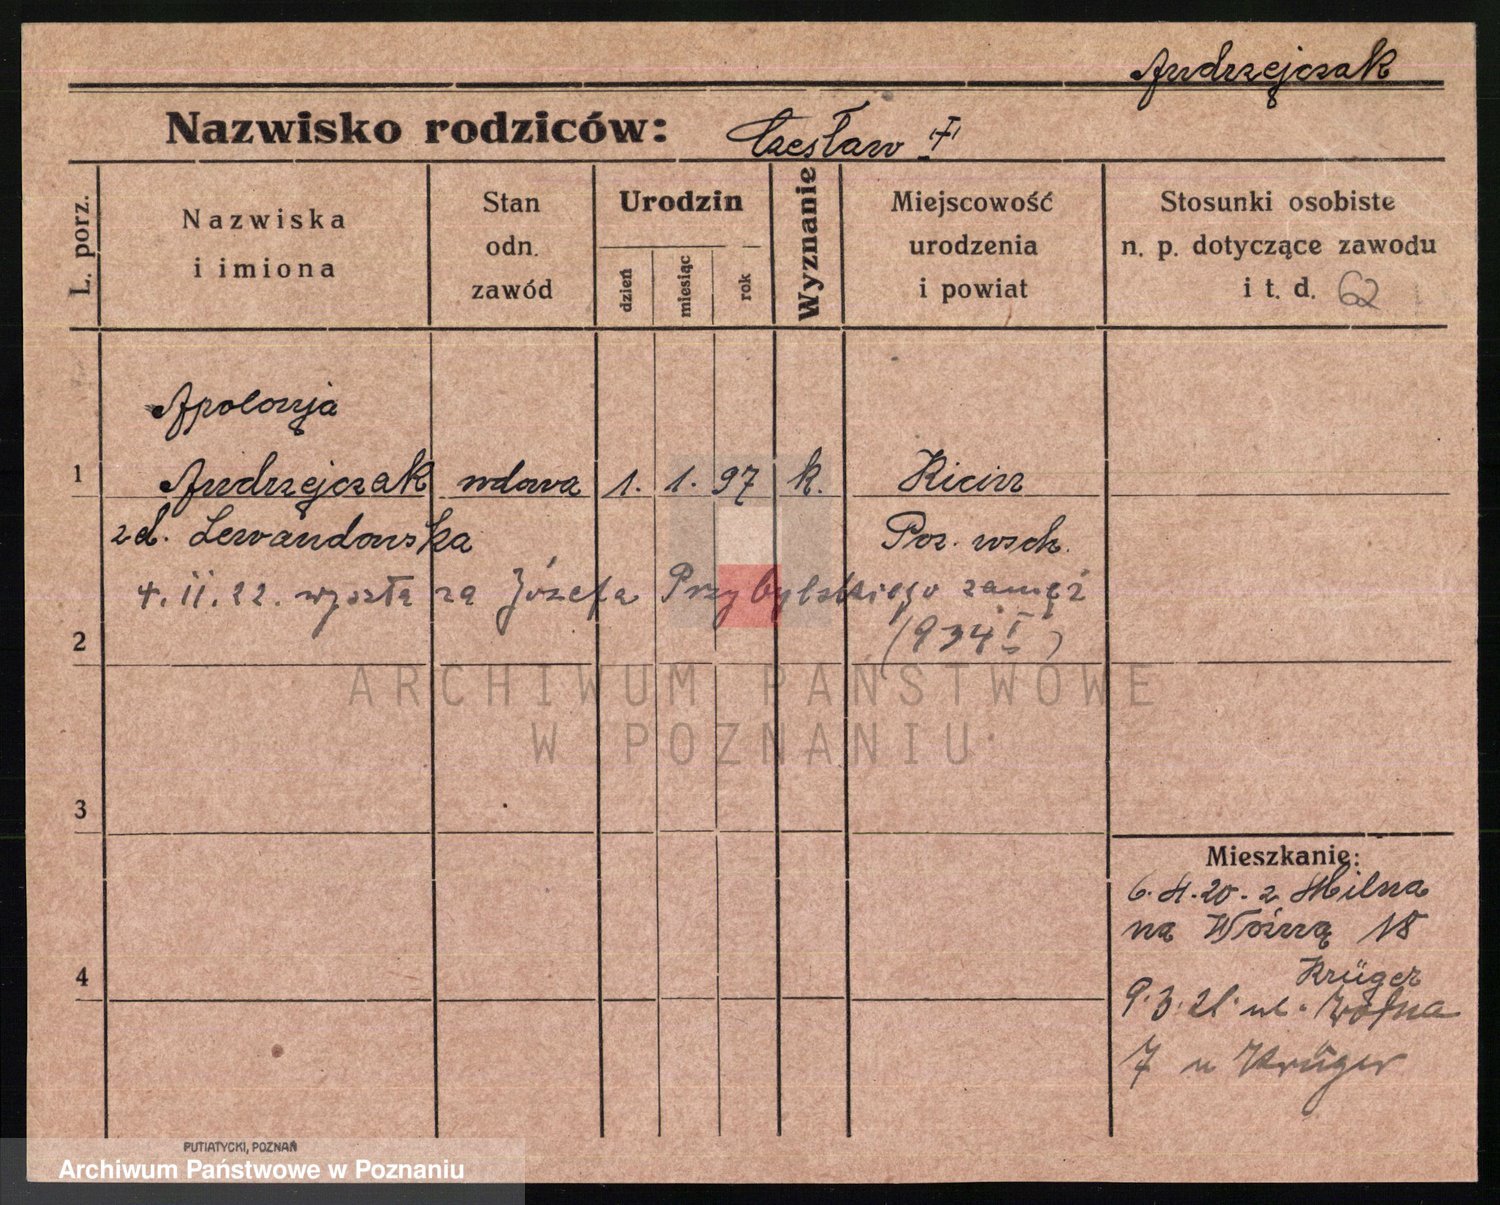 Andrzejczak
Nazwisko rodziców: Czesław
L. porz.
Nazwiska
i imiona
Stan
odn.
zawód
Urodzin
dzień
miesiąc
rok
Wyznanie
Miejscowość
urodzenia
i powiat
Stosunki osobiste
n. p. dotyczące zawodu
i t. d. 62
Apolonja
1 Andrzejczak wdowa 1. 1. 97 k. Kicin
zd. Lewandowska Poz. wsch.
4.II.22. wyszła za Józefa Przybylskiego zamęż
2 (934 I)
ARCHIWUM PAŃSTWOWE
W POZNANIU
3
Mieszkanie:
6.4.20. z Milna
na Woźną 18
Krüger
4
9.3.21. ul. Wolna
7 u Krüger
PUTIATYCKI, POZNAŃ
Archiwum Państwowe w Poznaniu